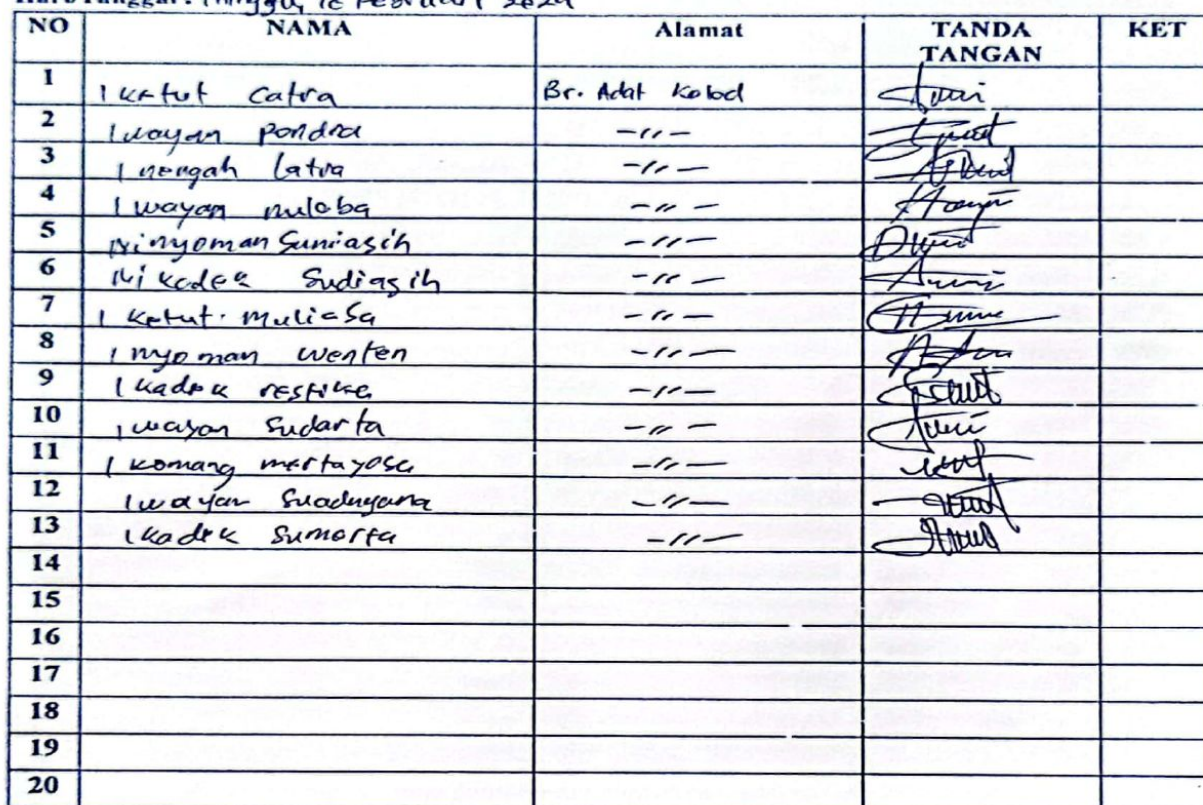 Minggu, 18 Februari 2024
NO NAMA Alamat TANDA TANGAN KET
1 I ketut catra Br. Adat Kelod
2 I wayan pondra -〃-
3 I nengah latra -〃-
4 I wayan nuloba -〃-
5 Ni nyoman Suniasih -〃-
6 Ni kadek Sudiasih -〃-
7 I Ketut. muliasa -〃-
8 I nyoman wenten -〃-
9 I kadek restika -〃-
10 I wayan Sudarta -〃-
11 I komang mertayasa -〃-
12 I wayan Suadnyana -〃-
13 I kadek Sumarta -〃-
14
15
16
17
18
19
20